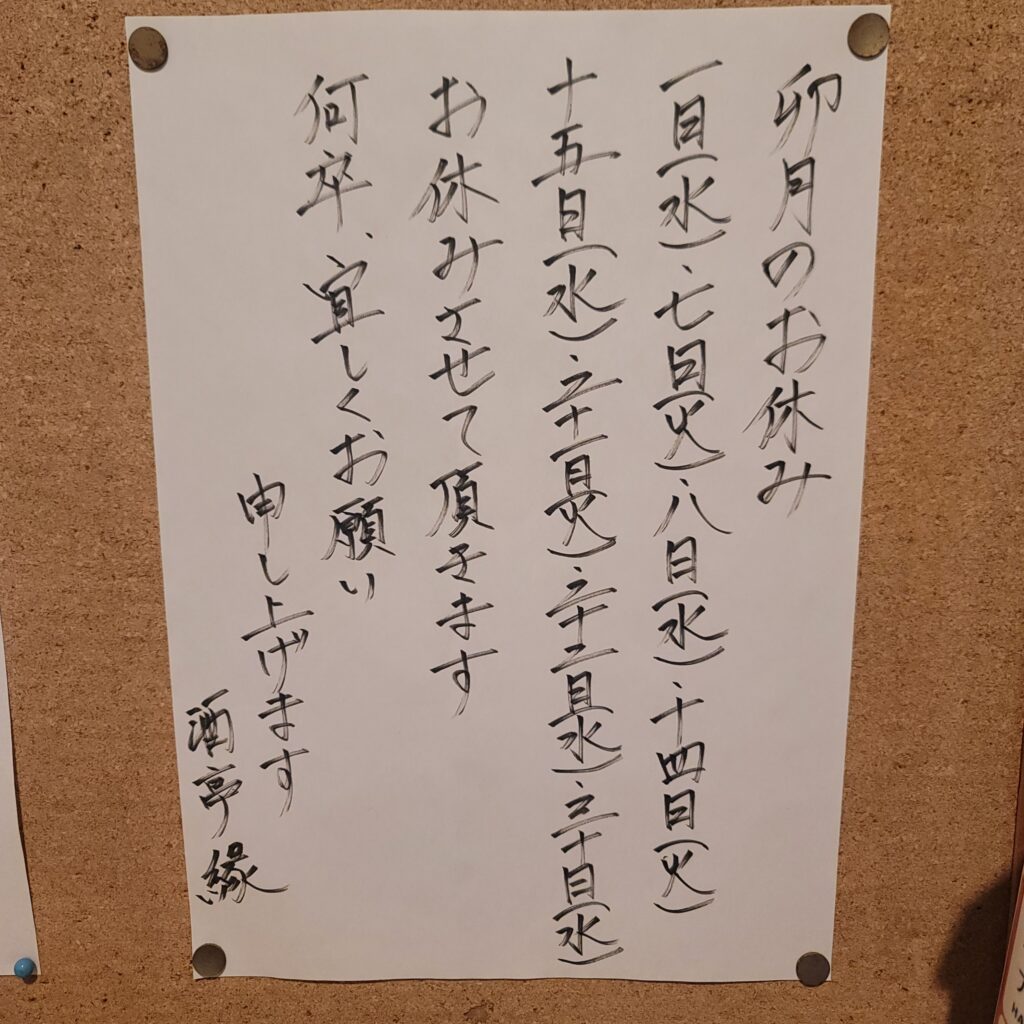 卯月のお休み
一日(水)、七日(火)、八日(水)、十四日(火)
十五日(水)、二十一日(火)、二十二日(水)、三十日(水)
お休みさせて頂きます
何卒、宜しくお願い
申し上げます
酒亭 縁